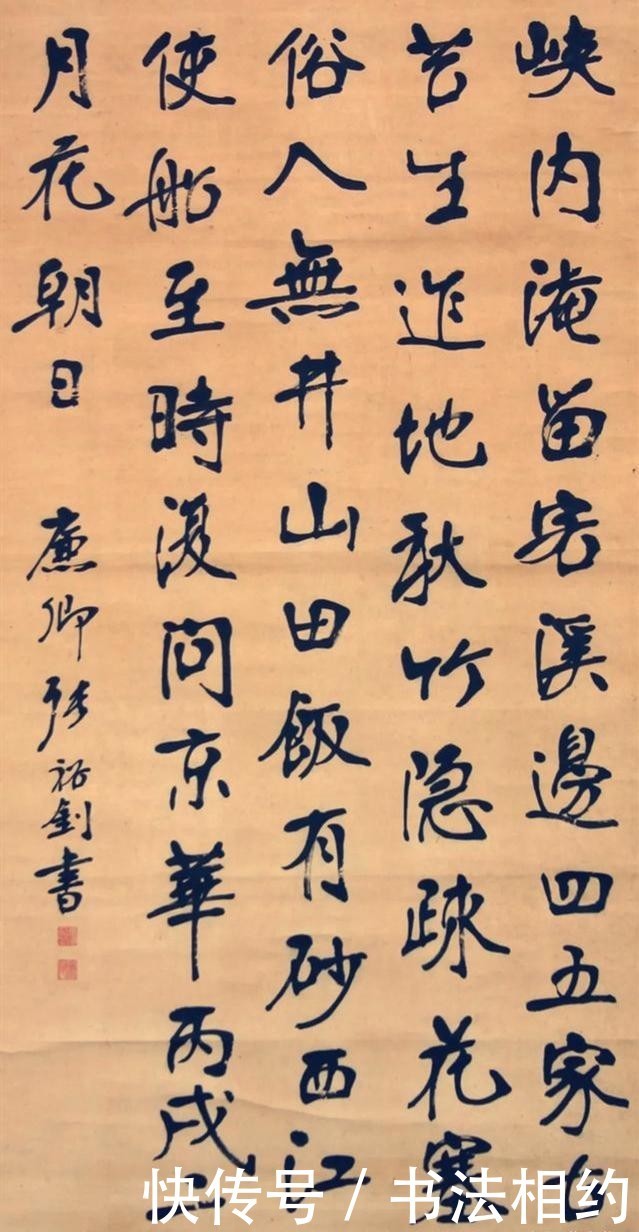 峽内淹畱客溪邊四五家
苔生迮地秋竹隐踈花塞
俗人無井山田飯有砂西江
使船至時復問京華丙戌二
月花朝日
廉卿張裕釗書
快传号 / 书法相约